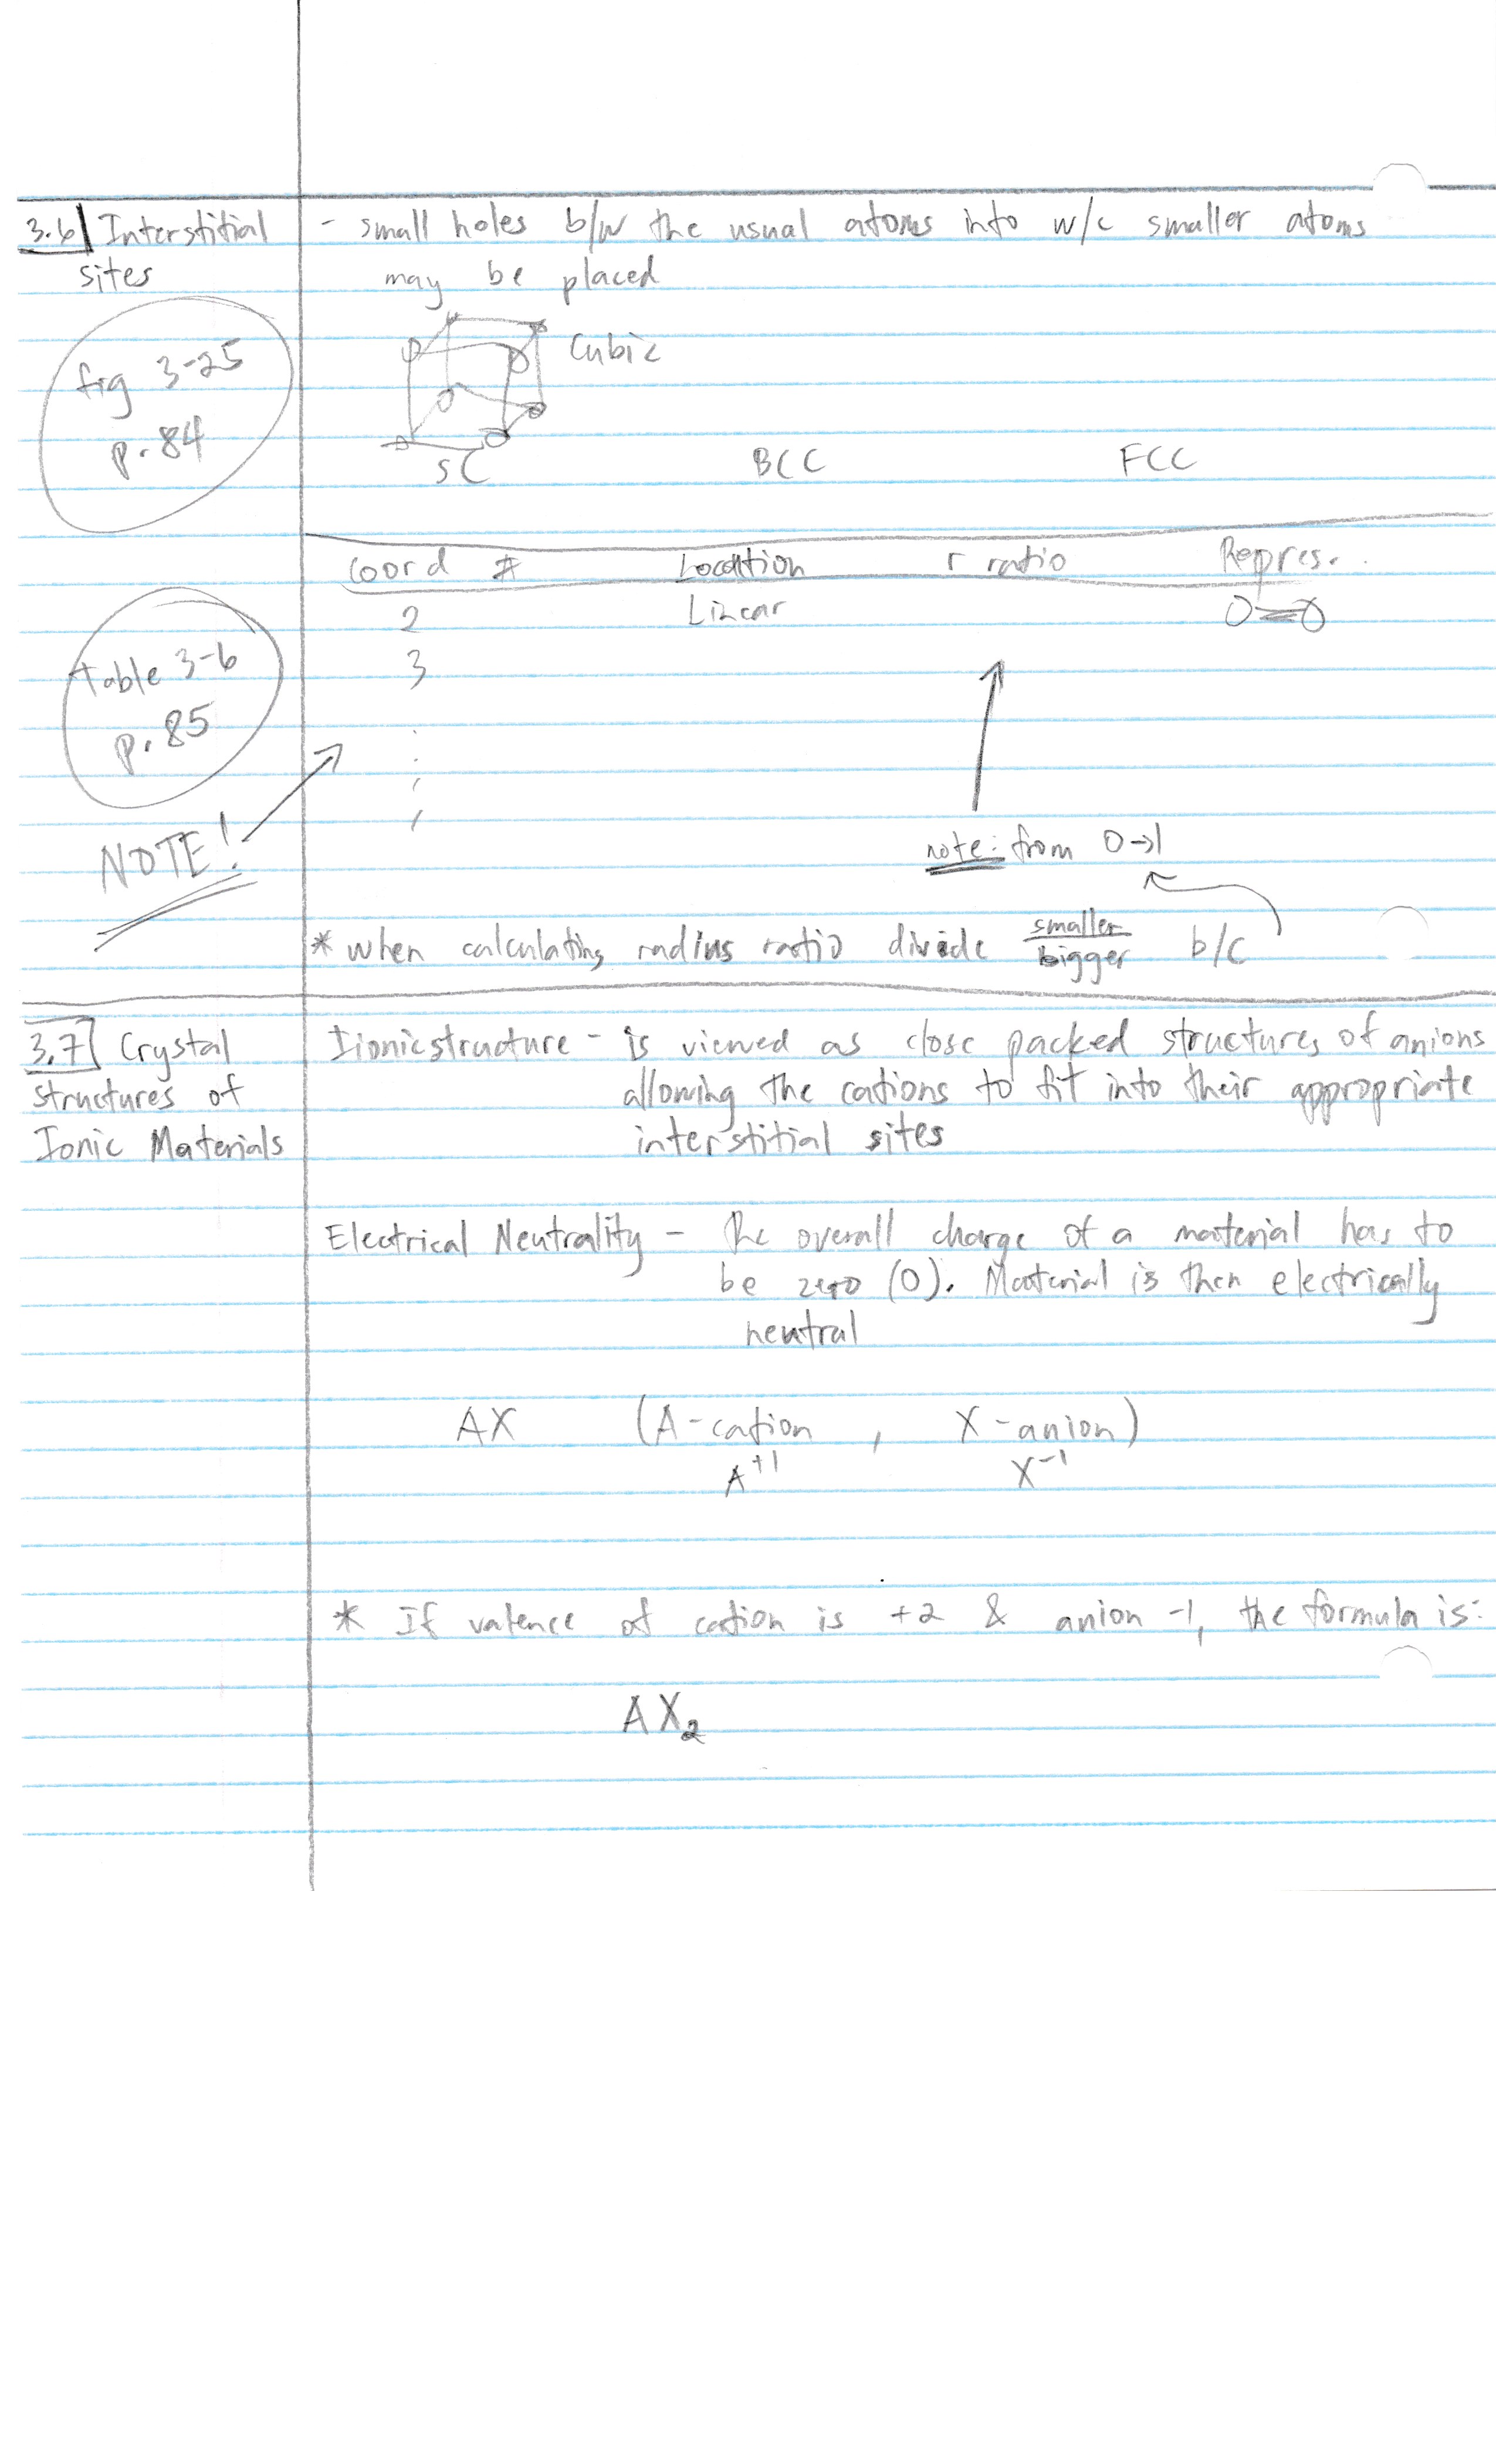 3.6 Interstitial
sites
- small holes b/w the usual atoms into w/c smaller atoms
may be placed
fig 3-25
p. 84
Cubic
SC BCC FCC
Coord # Location r ratio Repres.
2 Linear
3
table 3-6
p. 85
NOTE!
note: from 0→1
* when calculating radius ratio divide smaller/bigger b/c
3.7 Crystal
structures of
Ionic Materials
Iionic structure - is viewed as close packed structures of anions
allowing the cations to fit into their appropriate
interstitial sites
Electrical Neutrality - the overall charge of a material has to
be zero (0). Material is then electrically
neutral
AX (A-cation , X-anion)
A⁺¹ X⁻¹
* If valence of cation is +2 & anion -1, the formula is:
AX₂